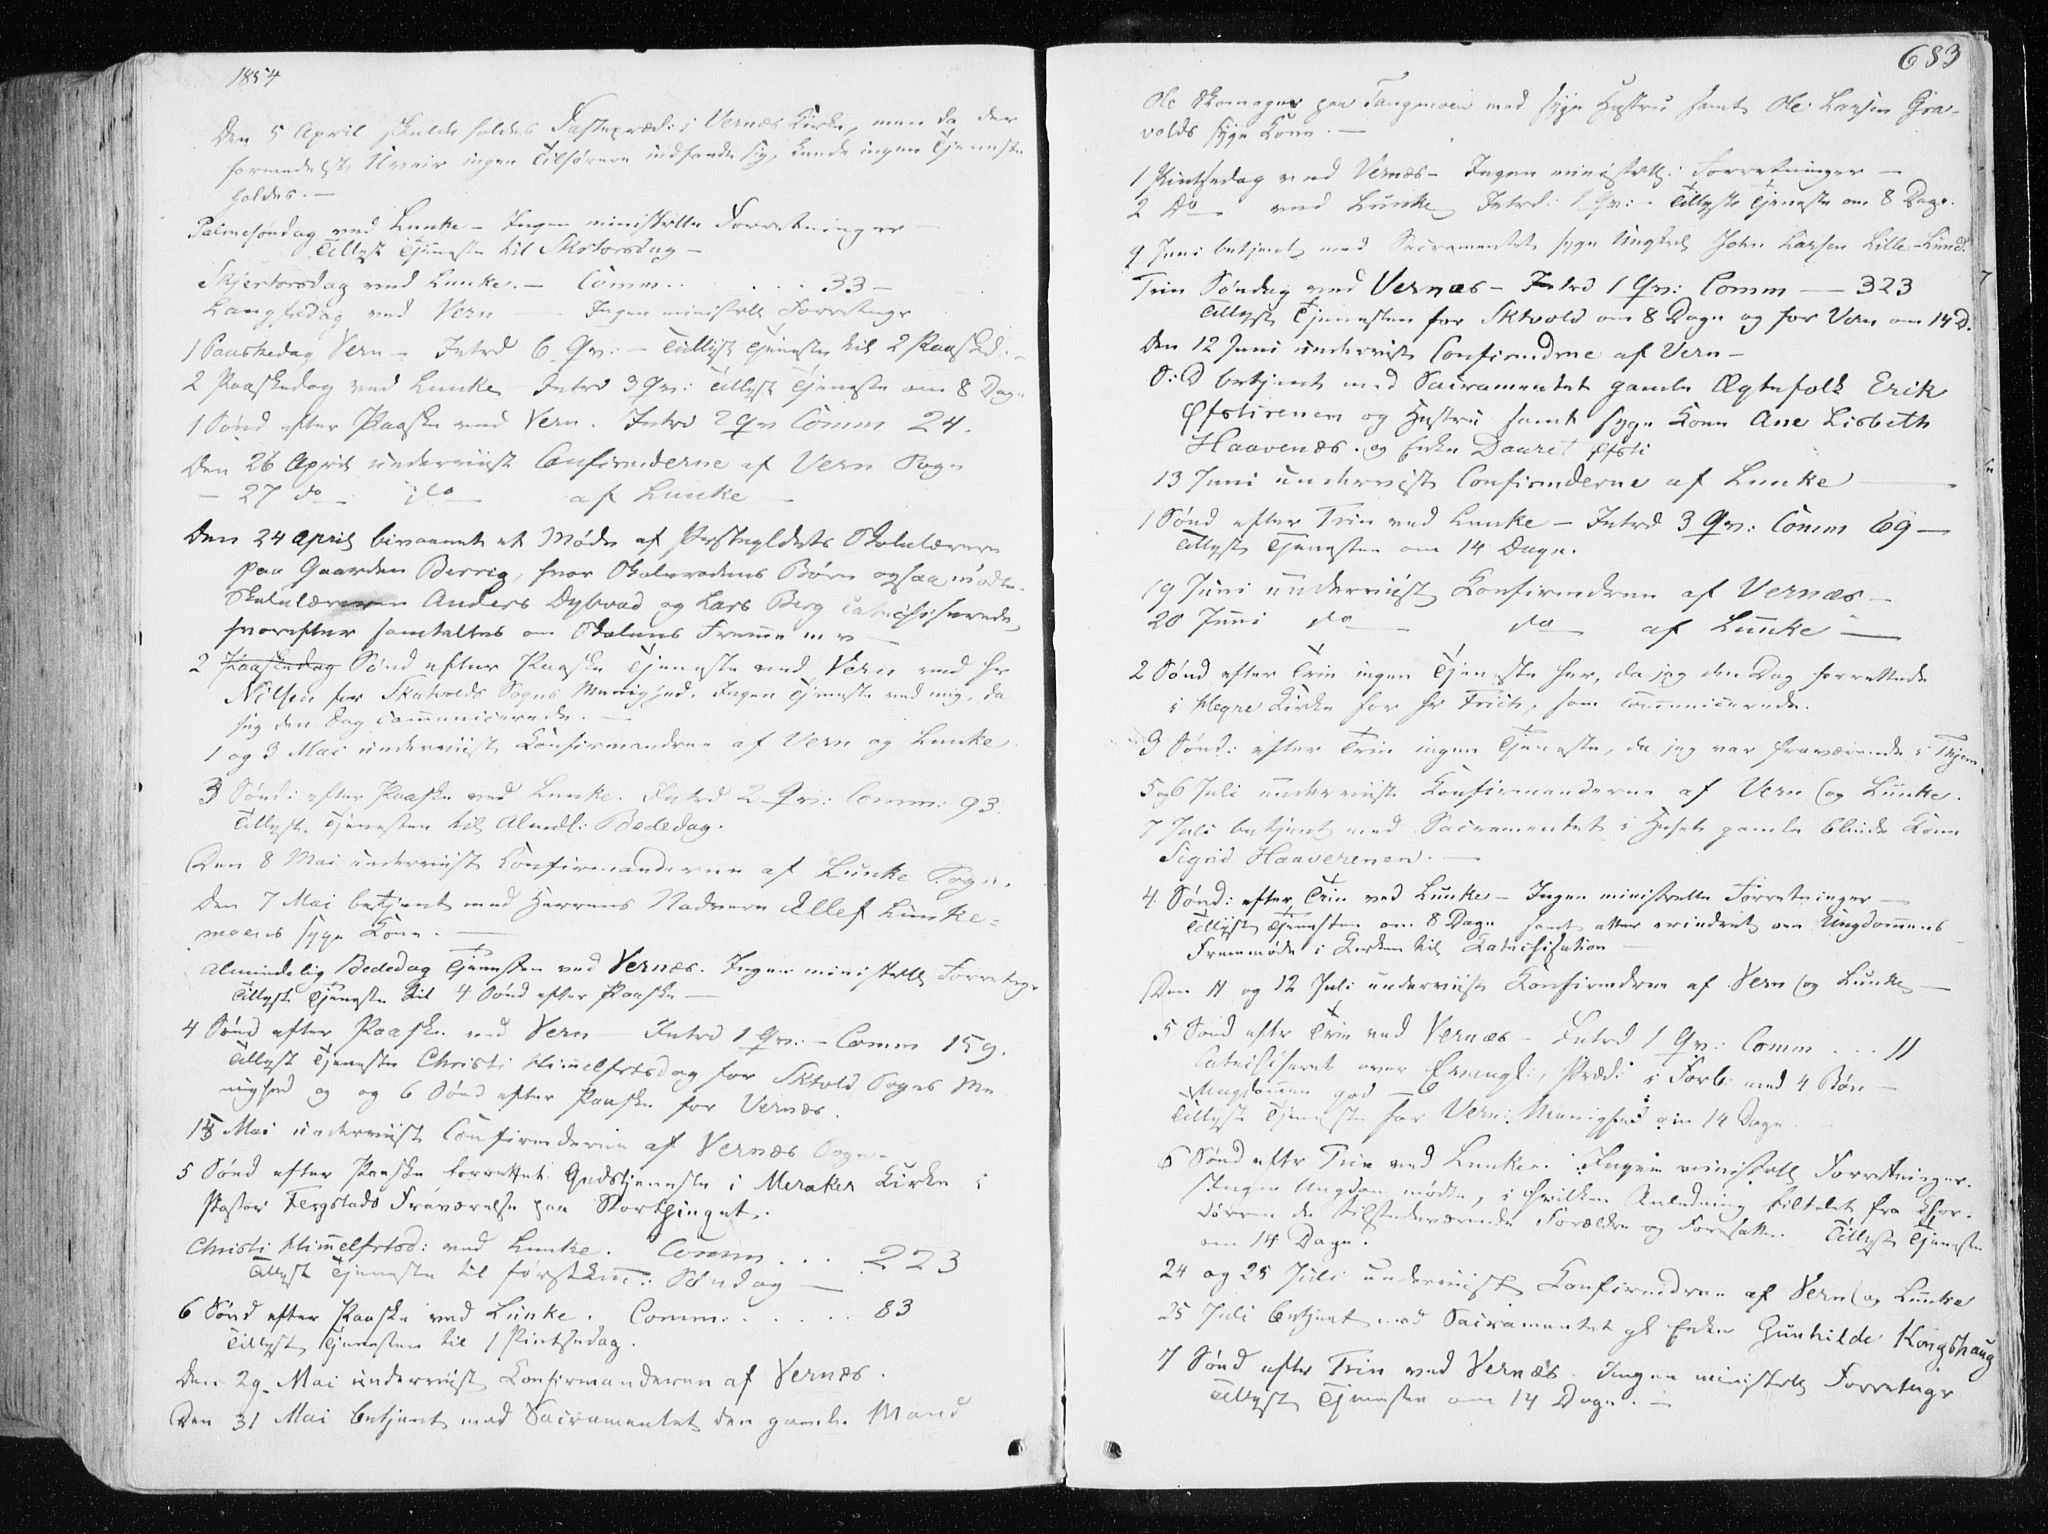 1854
Den 5 April skulde holdes Fastepræd: i Vernæs Kirke, men da der
formedelst Uveir ingen Tilhørere indfandt sig, kunde ingen Tjeneste
holdes. —
Palmesøndag ved Lunke — Ingen ministrelle Forretninger —
Tillyst Tjeneste til Skjtorsdag —
Skjertorsdag ved Lunke. — Comm. . . . . . 33 —
Langfredag ved Vern — Ingen ministrell Forretngr
1 Paaskedag Vern — Intrd 6 Qv: — Tillyst Tjeneste til 2 Paasked. —
2 Paaskedag ved Lunke — Intrd 3 Qv: Tillyst Tjeneste om 8 Dage
1 Sønd efter Paaske ved Vern. Intrd 2 Qv Comm 24.
Den 26 April underviist Confirmderne af Vern Sogn
— 27 do — do — af Lunke —
Den 24 April bivaanet et Møde af Præstegjeldets Skolelærere
paa Gaarden Berrig, hvor Skolerodens Børn ogsaa mødte.
Skolelærerne Anders Dybvad og Lars Berg catechiserede,
hvorefter samtaltes om Skolens Fremme m v —
2 Paaskedag Sønd efter Paaske Tjeneste ved Vern ved Hr
Nilsen for Skatvolds Sogns Menighed. Ingen Tjeneste ved mig, da
jeg den Dag communicerede. —
1 og 3 Mai underviist Confirmandene af Vern og Lunke
3 Sønd: efter Paaske ved Lunke. Intrd 2 Qv: Comm: 93.
Tillyst Tjenesten til Almdl: Bededag.
Den 8 Mai underviist Confirmanderne af Lunke Sogn.
Den 7 Mai betjent med Herrens Nadvere Ellef Lunke-
moens syge Kone. —
Almindelig Bededag Tjenesten ved Vernæs. Ingen ministrell Forretngr
Tillyst Tjeneste til 4 Sønd efter Paaske —
4 Sønd efter Paaske ved Vern — Intrd 1 Qv: — Comm 159.
Tillyst Tjeneste Christi Himelfrtsdag for Sktvold Sogns Me
nighed og og 6 Sønd efter Paaske for Vernæs.
15 Mai underviist Confirmderne af Vernæs Sogn —
5 Sønd efter Paaske forrettet Gudstjeneste i Meraker Kirke i
Pastor Fergstads Fraværelse paa Storthinget.
Christi Himmelfrtsd: ved Lunke. Comm . . . 223
Tillyst Tjeneste til førstkm: Søndag —
6 Sønd efter Paaske ved Lunke. Comm. . . . . . 83
Tillyst Tjenesten til 1 Pintsedag.
Den 29 Mai underviist Confirmanderne af Vernæs.
Den 31 Mai betjent med Sacramentet den gamle Mand
683
Ole Skomager paa Tangmoen med syge Hustru samt Ole Larsen Gra-
volds syge Kone. —
1 Pintsedag ved Vernæs — Ingen ministrell: Forretninger —
2 Do — ved Lunke Intrd: 1 Qv: — Tillyst Tjeneste om 8 Dage.
9 Juni betjent med Sacramentet syge Ungkarl John Larsen Lille-Lund.
Trin Søndag ved Vernæs — Intrd 1 Qv: Comm — 323
Tillyst Tjenesten for Sktvold om 8 Dage og for Vern om 14 D.
Den 12 Juni underviist Confirmdrne af Vern —
S: D betjent med Sacramentet gamle Ægtefolk Erik
Øfstirenen og Hustru samt syge Kone Ane Lisbeth
Haavenæs. og Enke Daaret Øfsti
13 Juni underviist Confirmderne af Lunke —
1 Sønd efter Trin ved Lunke — Intrd 3 Qv: Comm 69 —
Tillyst Tjenesten om 14 Dage.
19 Juni underviist Konfirmdrne af Vernæs —
20 Juni do — do — af Lunke —
2 Sønd efter Trin ingen Tjeneste her, da jeg den Dag forrettede
i Hegre Kirke for Hr Frich, som communicerede.
3 Sønd: efter Trin ingen Tjeneste, da jeg var fraværende i Thjem.
5 og 6 Juli underviist Konfirmanderne af Vern og Lunke.
7 Juli betjent med Sacramentet i Huset gamle blinde Kone
Sigrid Haaverenen. —
4 Sønd: efter Trin ved Lunke — Ingen ministrelle Forretninger —
Tillyst Tjenesten om 8 Dage samt atter erindret om Ungdommens
Fremmøde i Kirken til Katechisation —
Den 11 og 12 Juli underviist Konfirmdrne af Vern og Lunke —
5 Sønd eftr Trin ved Vernæs — Intrd 1 Qv: Comm . . . 11
Catechiseret over Evangl:, Præd: i Forb: med 4 Bøn —
Ungdommen god —
Tillyst Tjeneste for Vern: Menighed om 14 Dage.
6 Sønd eftr Trin ved Lunke. Ingen ministrell Forretninger.
Ingen Ungdom mødte, i hvilken Anledning tiltalt fra Chor-
døren de tilstedeværende Forældre og Foresatte. Tillyst Tjeneste
om 14 Dage.
24 og 25 Juli underviist Konfirmdrne af Vern og Lunke
25 Juli betjent med Sacramentet gl Enke Gunhilde Kongshaug
7 Sønd eftr Trin ved Vernæs. Ingen ministrell Forretngr
Tillyst Tjenesten om 14 Dage. —